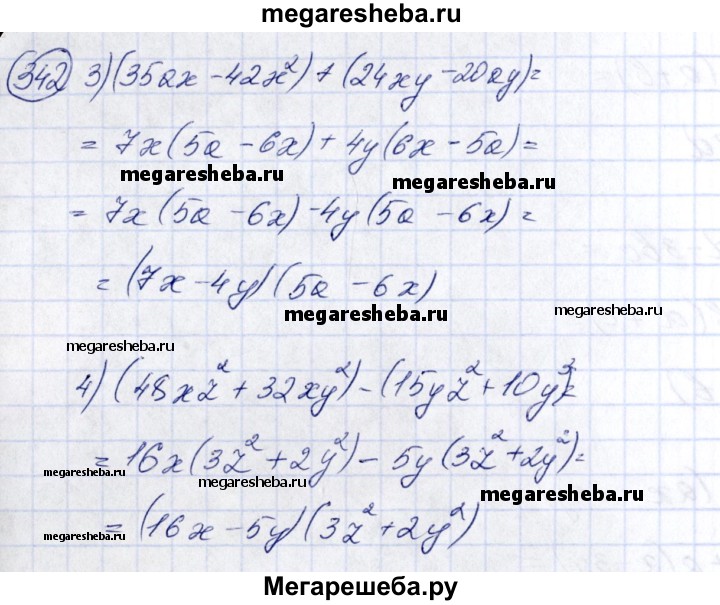 megaresheba.ru
342 3) (35ax - 42x²) + (24xy - 20ay) =
= 7x(5a - 6x) + 4y(6x - 5a) =
megaresheba.ru megaresheba.ru
= 7x(5a - 6x) - 4y(5a - 6x) =
= (7x - 4y)(5a - 6x)
megaresheba.ru megaresheba.ru
megaresheba.ru
4) (48xz² + 32xy²) - (15yz² + 10y³) =
= 16x(3z² + 2y²) - 5y(3z² + 2y²) =
megaresheba.ru megaresheba.ru megaresheba.ru
= (16x - 5y)(3z² + 2y²)
megaresheba.ru
Мегарешеба.ру